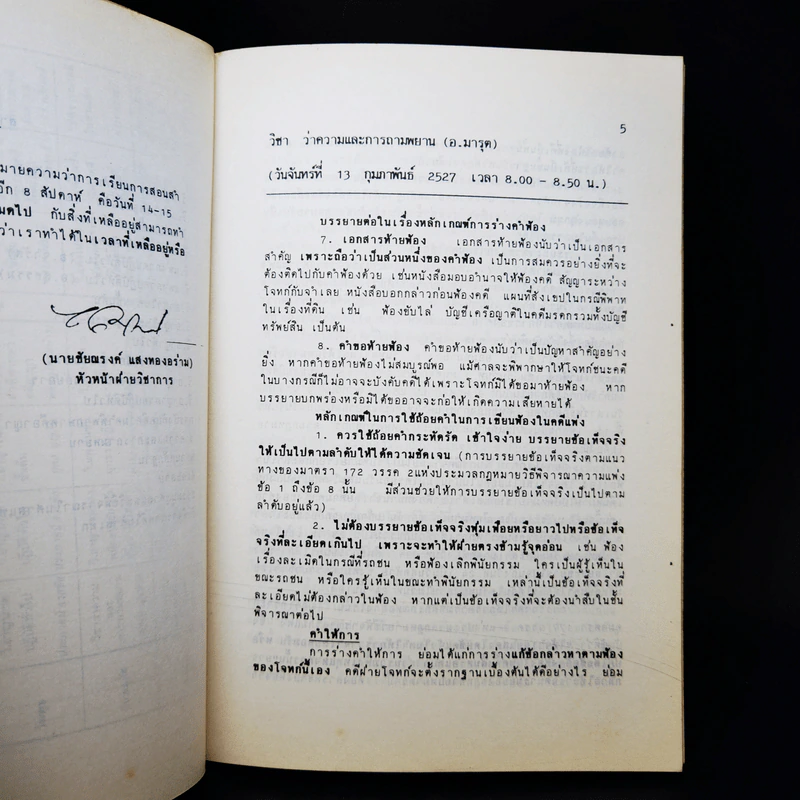 มายความว่าการเรียนการสอนสำ
อีก 8 สัปดาห์ คือวันที่ 14-15
หมดไป กับสิ่งที่เหลืออยู่สามารถทำ
ว่าเราทำได้ในเวลาที่เหลืออยู่หรือ
(นายชัยณรงค์ แสงทองอร่าม)
หัวหน้าฝ่ายวิชาการ
5
วิชา ว่าความและการถามพยาน (อ.มารุต)
(วันจันทร์ที่ 13 กุมภาพันธ์ 2527 เวลา 8.00 - 8.50 น.)
บรรยายต่อในเรื่องหลักเกณฑ์การร่างคำฟ้อง
7. เอกสารท้ายฟ้อง เอกสารท้ายฟ้องนับว่าเป็นเอกสาร
สำคัญ เพราะถือว่าเป็นส่วนหนึ่งของคำฟ้อง เป็นการสมควรอย่างยิ่งที่จะ
ต้องติดไปกับคำฟ้องด้วย เช่นหนังสือมอบอำนาจให้ฟ้องคดี สัญญาระหว่าง
โจทก์กับจำเลย หนังสือบอกกล่าวก่อนฟ้องคดี แผนที่สังเขปในกรณีพิพาท
ในเรื่องที่ดิน เช่น ฟ้องขับไล่ บัญชีเครือญาติในคดีมรดกรวมทั้งบัญชี
ทรัพย์สิน เป็นต้น
8. คำขอท้ายฟ้อง คำขอท้ายฟ้องนับว่าเป็นปัญหาสำคัญอย่าง
ยิ่ง หากคำขอท้ายฟ้องไม่สมบูรณ์พอ แม้ศาลจะพิพากษาให้โจทก์ชนะคดี
ในบางกรณีก็ไม่อาจจะบังคับคดีได้เพราะโจทก์มิได้ขอมาท้ายฟ้อง หาก
บรรยายบกพร่องหรือมิได้ขออาจจะก่อให้เกิดความเสียหายได้
หลักเกณฑ์ในการใช้ถ้อยคำในการเขียนฟ้องในคดีแพ่ง
1. ควรใช้ถ้อยคำกระทัดรัด เข้าใจง่าย บรรยายข้อเท็จจริง
ให้เป็นไปตามลำดับให้ได้ความชัดเจน (การบรรยายข้อเท็จจริงตามแนว
ทางของมาตรา 172 วรรค 2แห่งประมวลกฎหมายวิธีพิจารณาความแพ่ง
ข้อ 1 ถึงข้อ 8 นั้น มีส่วนช่วยให้การบรรยายข้อเท็จจริงเป็นไปตาม
ลำดับอยู่แล้ว)
2. ไม่ต้องบรรยายข้อเท็จจริงฟุ่มเฟือยหรือยาวไปหรือข้อเท็จ
จริงที่ละเอียดเกินไป เพราะจะทำให้ฝ่ายตรงข้ามรู้จุดอ่อน เช่น ฟ้อง
เรื่องละเมิดในกรณีที่รถชน หรือฟ้องเลิกพินัยกรรม ใครเป็นผู้รู้เห็นใน
ขณะรถชน หรือใครรู้เห็นในขณะทำพินัยกรรม เหล่านี้เป็นข้อเท็จจริงที่
ละเอียดไม่ต้องกล่าวในฟ้อง หากแต่เป็นข้อเท็จจริงที่จะต้องนำสืบในชั้น
พิจารณาต่อไป
คำให้การ
การร่างคำให้การ ย่อมได้แก่การร่างแก้ข้อกล่าวหาตามฟ้อง
ของโจทก์นี้เอง คดีฝ่ายโจทก์จะตั้งรากฐานเบื้องต้นได้ดีอย่างไร ย่อม